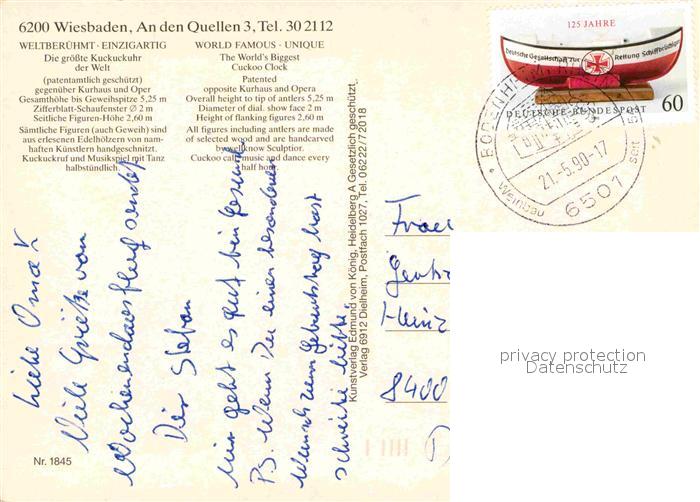 6200 Wiesbaden, An den Quellen 3, Tel. 30 2112
WELTBERÜHMT · EINZIGARTIG
Die größte Kuckuckuhr
der Welt
(patentamtlich geschützt)
gegenüber Kurhaus und Oper
Gesamthöhe bis Geweihspitze 5,25 m
Zifferblatt-Schaufenster ∅ 2 m
Seitliche Figuren-Höhe 2,60 m
Sämtliche Figuren (auch Geweih) sind
aus erlesenen Edelhölzern von nam-
haften Künstlern handgeschnitzt.
Kuckuckruf und Musikspiel mit Tanz
halbstündlich.
WORLD FAMOUS · UNIQUE
The World's Biggest
Cuckoo Clock
Patented
opposite Kurhaus and Opera
Overall height to tip of antlers 5,25 m
Diameter of dial. show face 2 m
Height of flanking figures 2,60 m
All figures including antlers are made
of selected wood and are handcarved
by well know Sculptior.
Cuckoo call, music and dance every
half hour.
Liebe Oma!
Viele Grüße vom
Wochenendausflug sendet
Dir Stefan
Mir geht es gut bin gesund
P.S. Wenn Du einen besonderen
Wunsch zum Geburtstag hast
schreibe bitte!
Kunstverlag Edmund von König, Heidelberg A Gesetzlich geschützt.
Verlag 6912 Dielheim, Postfach 1027, Tel. 06222/72018
125 JAHRE
Deutsche Gesellschaft zur Rettung Schiffbrüchiger
DEUTSCHE BUNDESPOST 60
BODENHEIM
21.-5.90-17
Weinbau seit
6501
Heinz
8400
privacy protection
Datenschutz
Nr. 1845